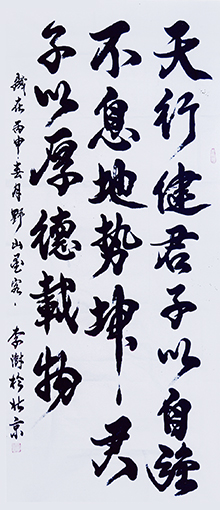 天行健君子以自強
不息地勢坤、君
子以厚德載物
歲在丙申春月野山墨客、李於北京